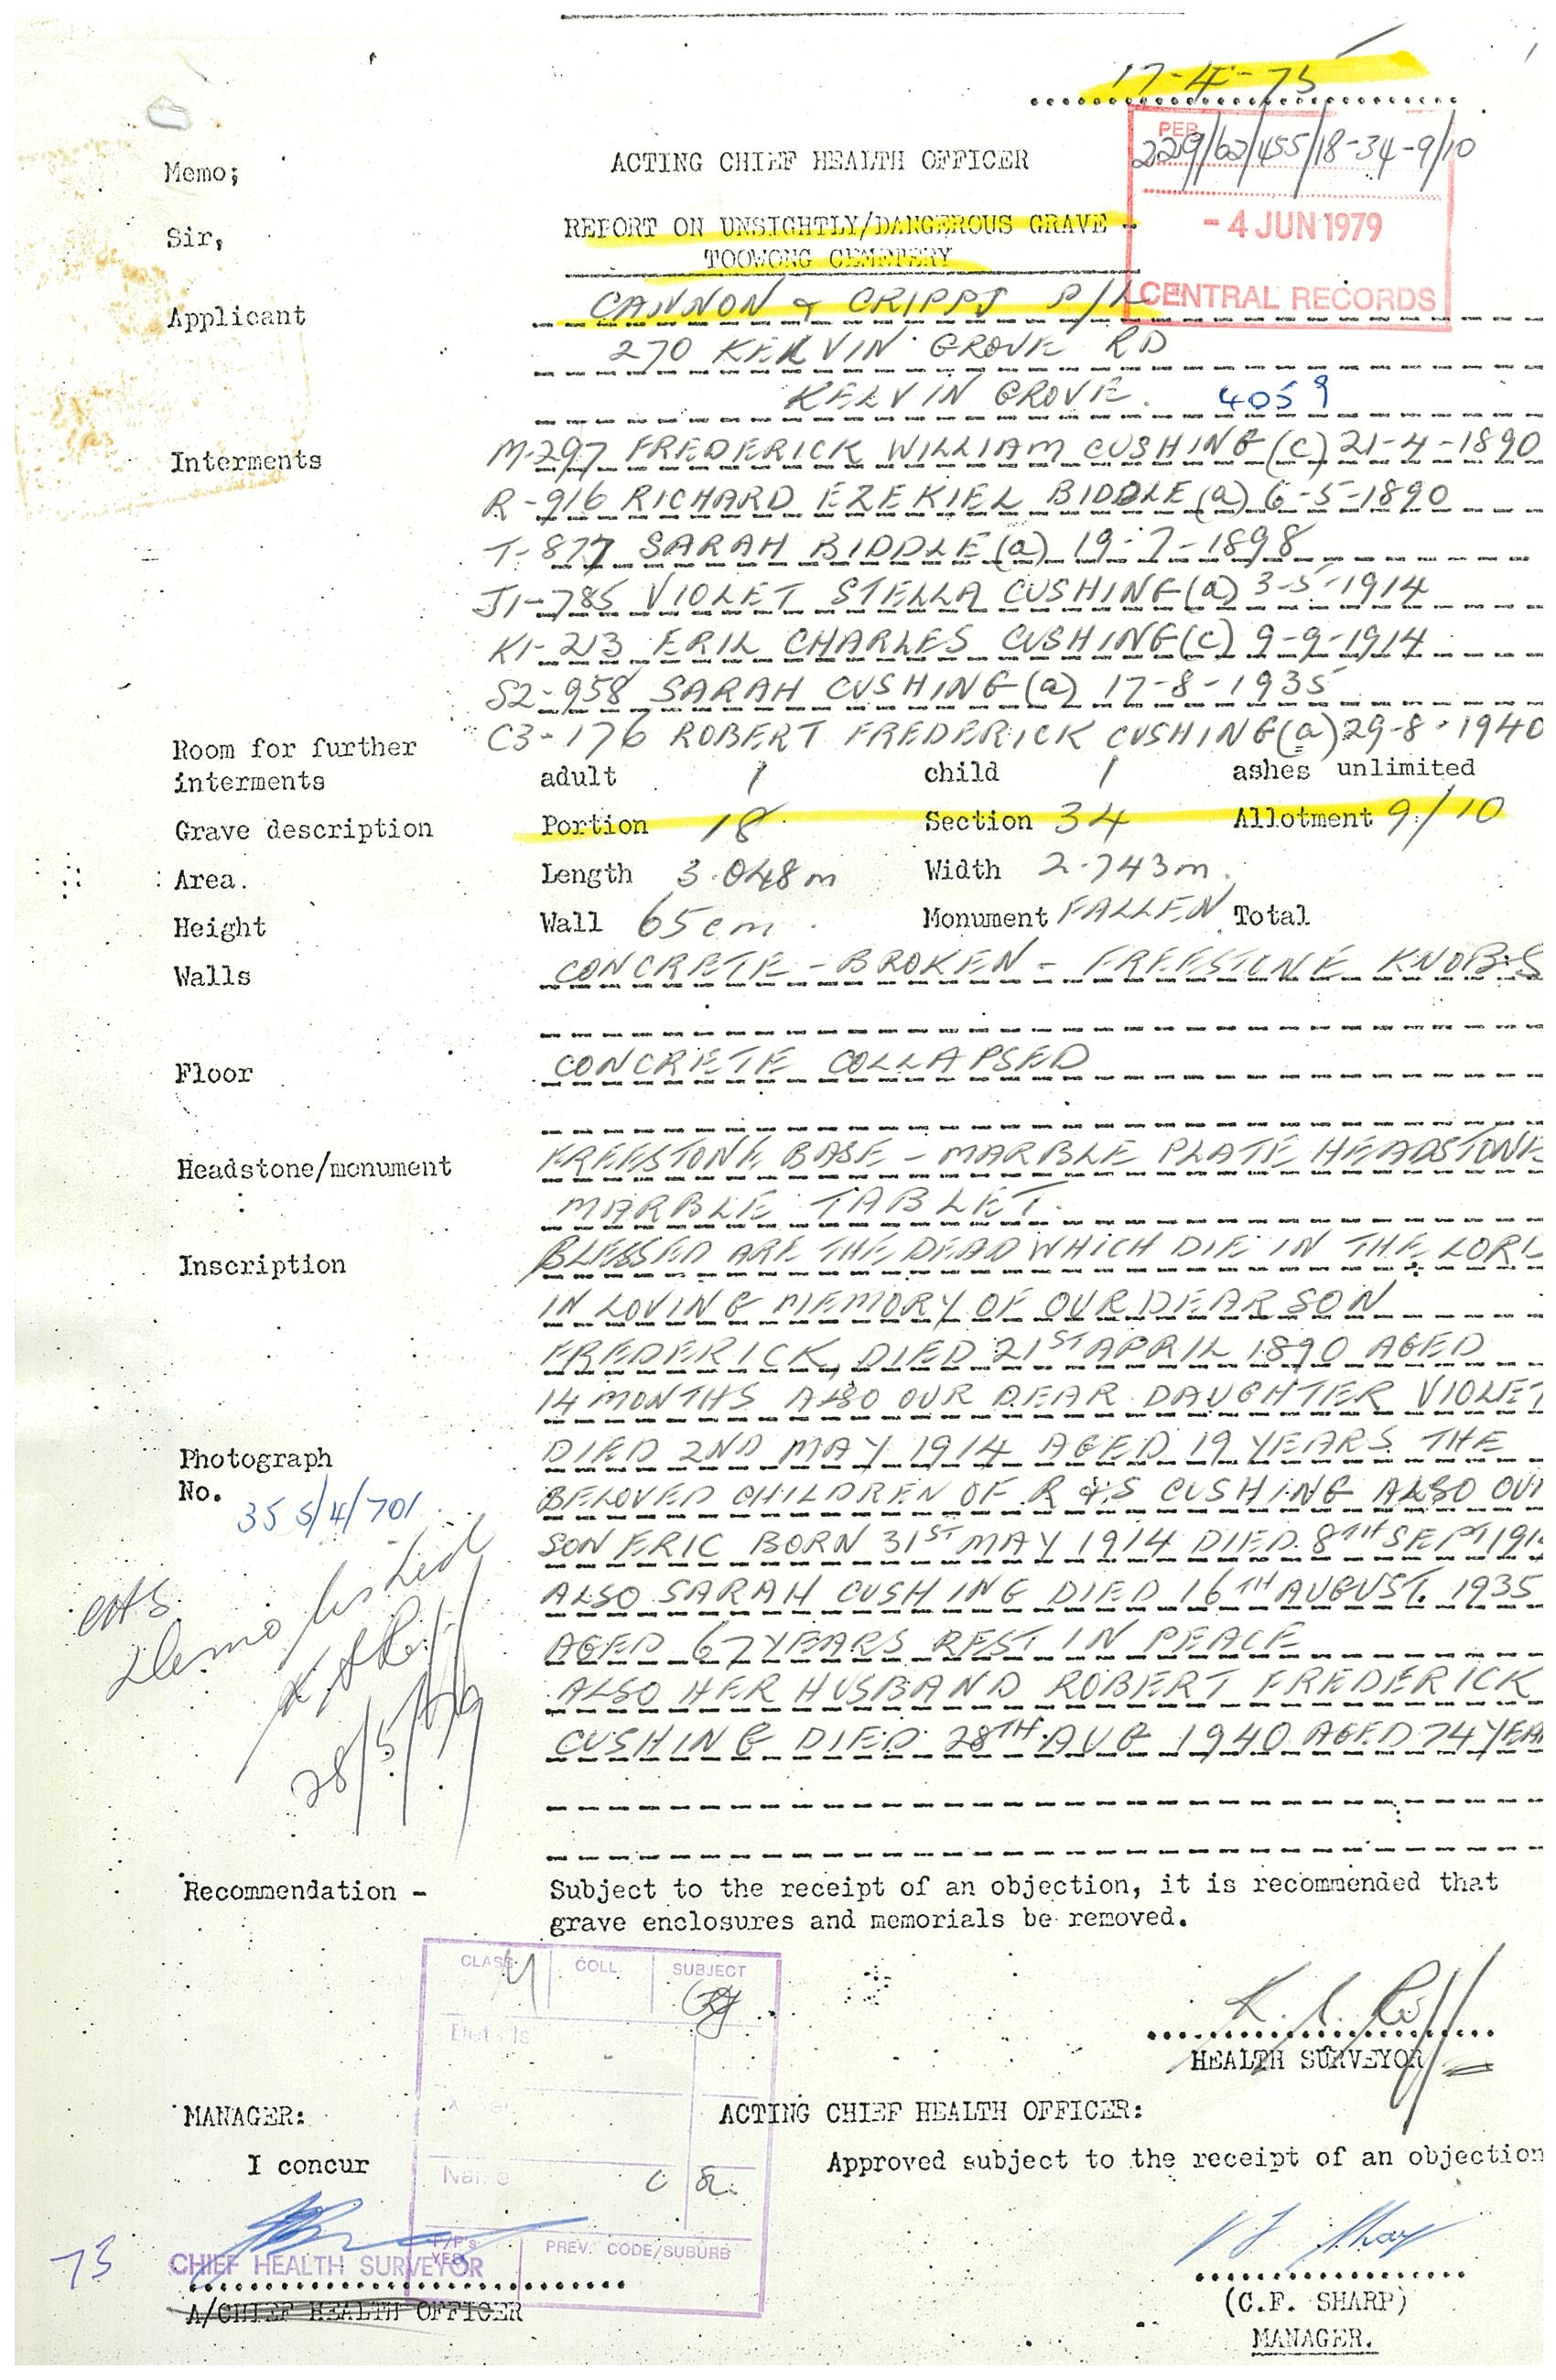 17-4-75
PER
229/62/455/18-34-9/10
- 4 JUN 1979
CENTRAL RECORDS
Memo;
ACTING CHIEF HEALTH OFFICER
Sir,
REPORT ON UNSIGHTLY/DANGEROUS GRAVE -
TOOWONG CEMETERY
Applicant
CANNON & CRIPPS P/L
270 KELVIN GROVE RD
KELVIN GROVE. 4059
Interments
M-297 FREDERICK WILLIAM CUSHING (c) 21-4-1890
R-916 RICHARD EZEKIEL BIDDLE (a) 6-5-1890
T-877 SARAH BIDDLE (a) 19-7-1898
J1-785 VIOLET STELLA CUSHING (a) 3-5-1914
K1-213 ERIL CHARLES CUSHING (c) 9-9-1914
S2-958 SARAH CUSHING (a) 17-8-1935
C3-176 ROBERT FREDERICK CUSHING (a) 29-8-1940
Room for further interments
adult 1 child 1 ashes unlimited
Grave description
Portion 18 Section 34 Allotment 9/10
Area.
Length 3.048m Width 2.743m.
Height
Wall 65cm. Monument FALLEN Total
Walls
CONCRETE - BROKEN - FREESTONE KNOBS
Floor
CONCRETE COLLAPSED
Headstone/monument
FREESTONE BASE - MARBLE PLATE HEADSTONE
MARBLE TABLET.
Inscription
BLESSED ARE THE DEAD WHICH DIE IN THE LORD
IN LOVING MEMORY OF OUR DEAR SON
FREDERICK, DIED 21ST APRIL 1890 AGED
14 MONTHS ALSO OUR DEAR DAUGHTER VIOLET
DIED 2ND MAY 1914 AGED 19 YEARS. THE
BELOVED CHILDREN OF R & S CUSHING ALSO OUR
SON ERIC BORN 31ST MAY 1914 DIED 8TH SEPT 191
ALSO SARAH CUSHING DIED 16TH AUGUST. 1935
AGED 67 YEARS REST IN PEACE
ALSO HER HUSBAND ROBERT FREDERICK
CUSHING DIED 28TH AUG 1940 AGED 74 YEA
Photograph
No.
35 5/4/701
Demolished
28/5/79
Recommendation -
Subject to the receipt of an objection, it is recommended that
grave enclosures and memorials be removed.
CLASS COLL. SUBJECT
Details
Name
P/P's
YES
PREV. CODE/SUBURB
HEALTH SURVEYOR
MANAGER:
ACTING CHIEF HEALTH OFFICER:
I concur
Approved subject to the receipt of an objection
73
CHIEF HEALTH SURVEYOR
A/CHIEF HEALTH OFFICER
(C.F. SHARP)
MANAGER.